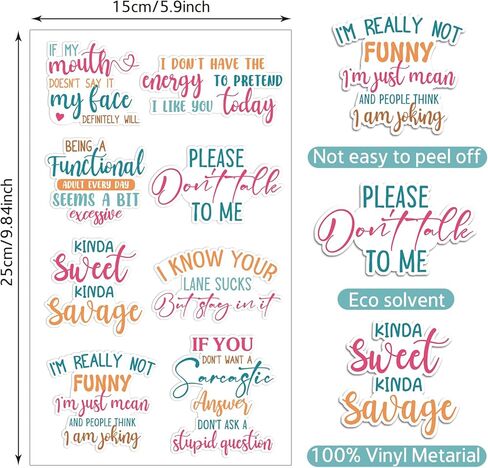 15cm/5.9inch
25cm/9.84inch
IF MY
mouth
DOESN'T SAY IT
my face
DEFINITELY WILL
I DON'T HAVE THE
energy TO PRETEND
I LIKE YOU today
BEING A
Functional
ADULT EVERY DAY
SEEMS A BIT
excessive
PLEASE
Don't talk
TO ME
KINDA
Sweet
KINDA
Savage
I KNOW YOUR
LANE SUCKS
But stay in it
I'M REALLY NOT
FUNNY
I'm just mean
AND PEOPLE THINK
I am joking
IF YOU
DON'T WANT A
Sarcastic
Answer
DON'T ASK A
stupid question
I'M REALLY NOT
FUNNY
I'm just mean
AND PEOPLE THINK
I am joking
Not easy to peel off
PLEASE
Don't talk
TO ME
Eco solvent
KINDA
Sweet
KINDA
Savage
100% Vinyl Metarial